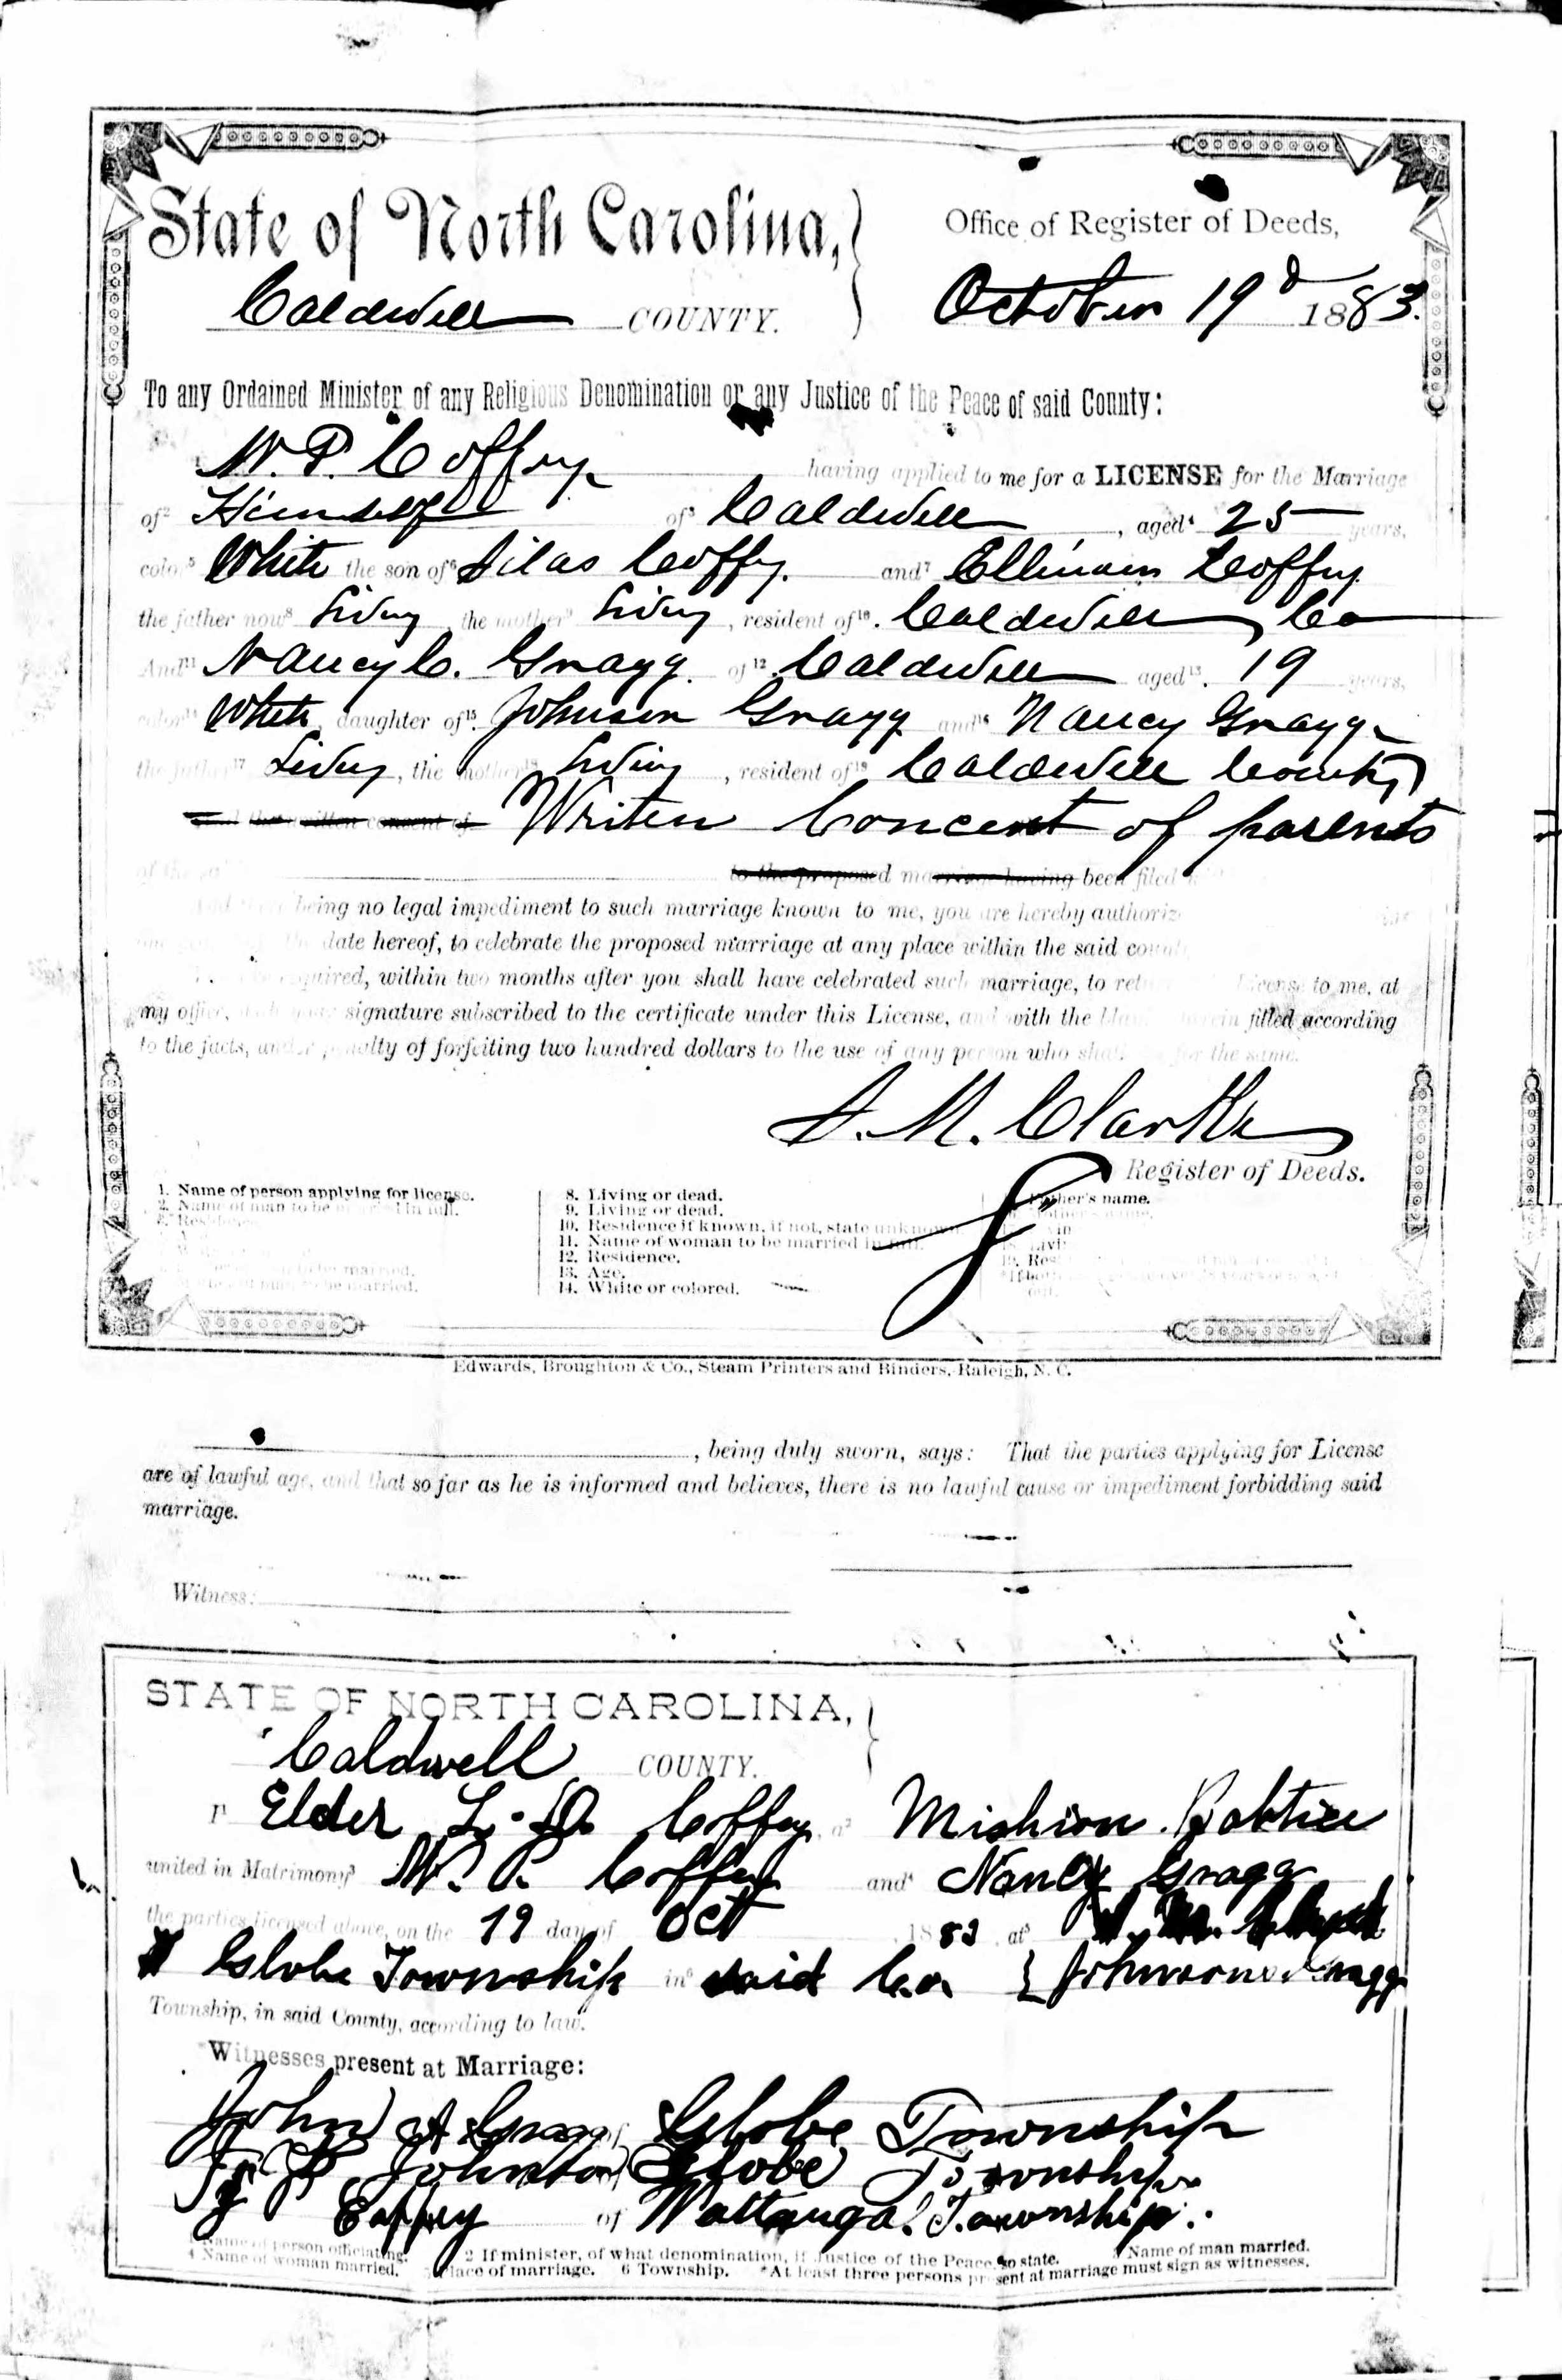 State of North Carolina,
Office of Register of Deeds,
Caldwell COUNTY.
October 19d 1883.
To any Ordained Minister of any Religious Denomination or any Justice of the Peace of said County:
W. P. Coffey having applied to me for a LICENSE for the Marriage
of2 Himself of3 Caldwell, aged4 25 years,
color5 White the son of6 Silas Coffy. and7 Coffey
the father now8 Living, the mother9 Living, resident of10. Caldwell Co
And11 Nancy C. Gragg of12. Caldwell aged13. 19 years,
color14 White daughter of15. Johnson Gragg and16 Nancy Gragg
the father17 Living, the mother18 Living, resident of19 Caldwell County
and the written consent of Writen Concent of parents
of the to the proposed marriage having been filed
And there being no legal impediment to such marriage known to me, you are hereby authoriz
date hereof, to celebrate the proposed marriage at any place within the said
required, within two months after you shall have celebrated such marriage, to License to me, at
my office, signature subscribed to the certificate under this License, and with the herein filled according
to the facts, under penalty of forfeiting two hundred dollars to the use of any person who for the same.
Clarke
Register of Deeds.
1. Name of person applying for license.
2. Name of man to be in full.
3. Residence
to be married.
to be married.
8. Living or dead.
9. Living or dead.
10. Residence if known, if not, state unknown
11. Name of woman to be married in full.
12. Residence.
13. Age.
14. White or colored.
Father's name.
Mother's name.
Edwards, Broughton & Co., Steam Printers and Binders, Raleigh, N. C.
, being duly sworn, says: That the parties applying for License
are of lawful age, and that so far as he is informed and believes, there is no lawful cause or impediment forbidding said
marriage.
Witness:
STATE OF NORTH CAROLINA,
Caldwell COUNTY.
I1 Elder Coffey, a2 Mishion
united in Matrimony3 W. P. Coffey and4 Nancy Gragg
the parties licensed above, on the 19 day of Oct 1883, at5
Globe Township in6 said Co. Johnson Gragg
Township, in said County, according to law.
*Witnesses present at Marriage:
John A Gragg Globe Township
Johnson Globe Township
Coffey of Wattauga Township.
1 Name of person officiating. 2 If minister, of what denomination, if Justice of the Peace, so state. 3 Name of man married.
4 Name of woman married. 5 Place of marriage. 6 Township. *At least three persons present at marriage must sign as witnesses.